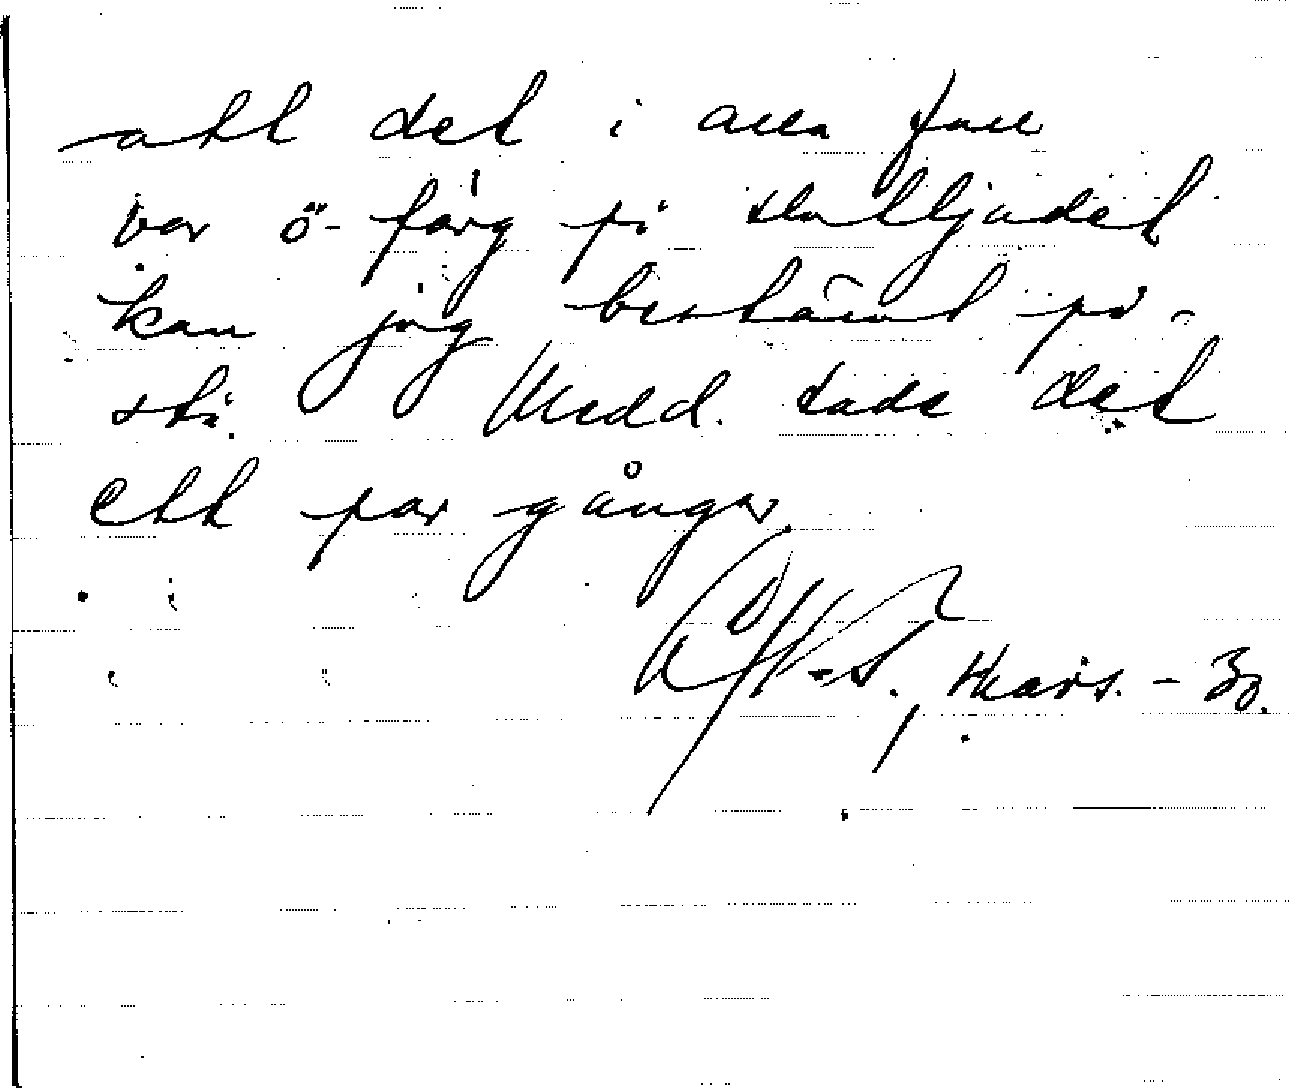 att det i alla fall
var ö-färg på slutljudet
kan jag bestämt på-
stå. Medd. sade det
ett par gånger.
Mars. - 30.